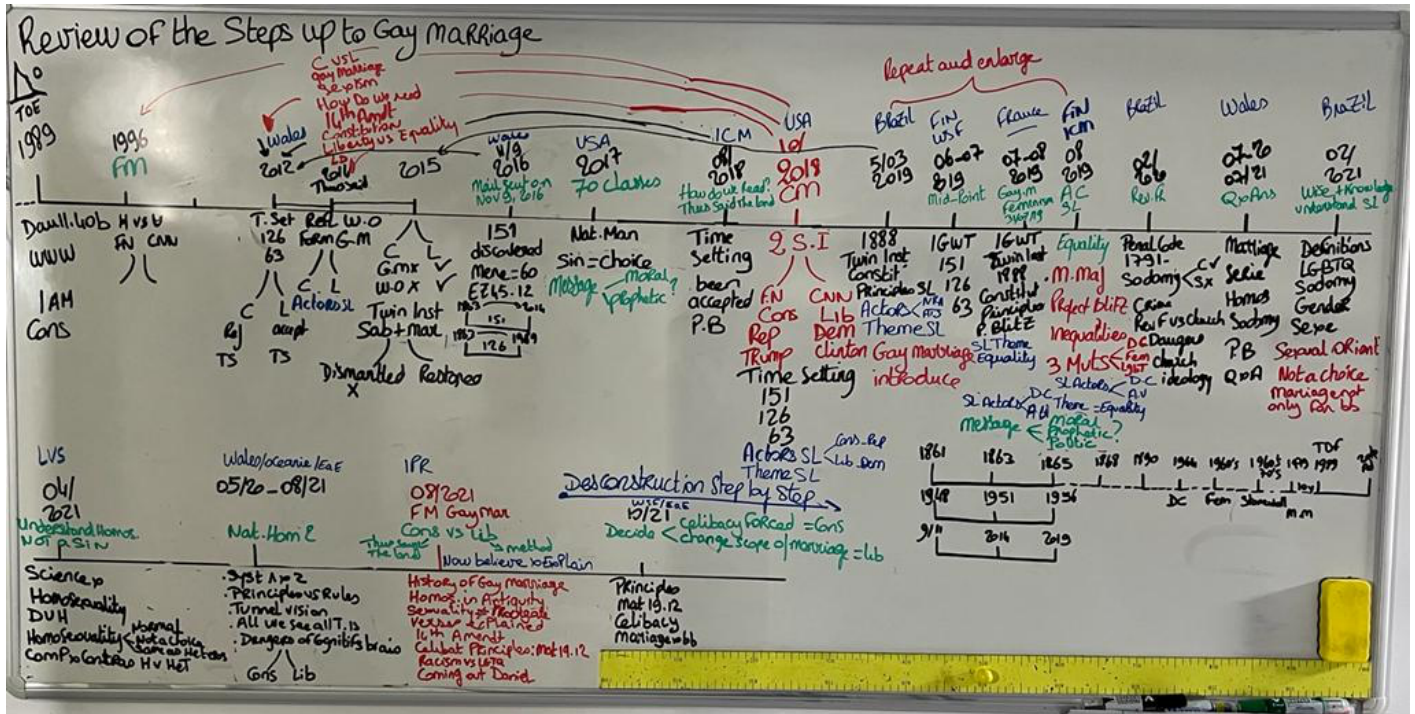 Review of the Steps up to Gay Marriage
TOE
1989
1996
FM
C vs L
gay marriage
Sexism
How Do we read
14th Amdt
Constitution
Liberty vs Equality
Wales
2012
2014
Thus said
2015
Wales
2016
Mail sent on
Nov 9, 2016
USA
2017
70 classes
ICM
08/
2018
How do we Read?
Thus Said the Lord
USA
10/
2018
CM
Repeat and enlarge
Brazil
5/03
2019
FiN
WSF
06-07
2019
Mid-Point
France
07-08
2019
Gay.m
Feminism
FiN
ICM
08
2019
A.C
SL
Brazil
02/
Wales
07-20
02/21
QxAns
Brazil
02/
2021
Wise + Knowledge
understand SL
WWW
I AM
Cons
H vs U
FN CNN
T. Set
126
63
C L
Rej accept
TS TS
W.O
Form G.M
C L
Actors SL
C L
G.M x ✓
W.O x ✓
Twin Inst
Sab + mar
Dismantled Restored
X
151
discovered
Mene = 60
EZ 45.12
1863 2014
151
1863 1989
126
Nat. Man
Sin = choice
Message < Moral ?
prophetic
Time
Setting
been
accepted
P.B
2 S.I
FN CNN
Cons Lib
Rep Dem
Trump Clinton Gay marriage
Time Setting introduce
151
126
63
Actors SL < Cons-Rep
Lib-Dem
Theme SL
1888
Twin Inst
Constit
Principles SL
Actors
Theme SL
IGWT
151
126
63
IGWT
Twin Inst
1888
Constitut
Principles
P. Blitz
SL Theme
Equality
Equality
M. Maj
Project Blitz
Inequalities
3 Muts < D.C
Fem
SL Actors
Theme = Equality
SL Actors
Message < Moral
Prophetic ?
Politic
Penal Code
1791-
Sodomy
Crime
Rev F vs Church
Dangers
church
ideology
Marriage
Sexe
Homos
Sodomy
P.B
QxA
Definitions
LGBTQ
Sodomy
Gender
Sexe
Sexual Orient
Not a choice
Mariage not
only for bb
LVS
04/
2021
Understand Homos.
NOT a SIN
Science x
Homosexuality
DVH
Homosexuality < Normal
Not a choice
Comp x Contras H v Het
Wales/oceanie/EaE
05/20-08/21
Nat. Hom 2
. Syst 1 x 2
. Principles vs Rules
. Tunnel vision
. All we see all T. is
. Dangers of Cognitifs biais
Cons Lib
IPR
08/2021
FM Gay Mar
Cons vs Lib
Thus saith
The Lord
method
Now believe x Explain
History of Gay marriage
Homos. in Antiquity
Sexuality ≠ Procreate
Verses Explained
14th Amendt
Celibat Principles: Mat 19.12
Racism vs LGTQ
Coming out Daniel
Desconstruction Step by Step
10/21
Decide < Celibacy Forced = Cons
change scope of marriage = Lib
Principles
Mat 19.12
Celibacy
Mariage x bb
1861 1863 1865 1868 1890 1964 1960's 1979 1989
DC Fem Stonewall M.M
1948 1951 1956
9/11 2014 2019